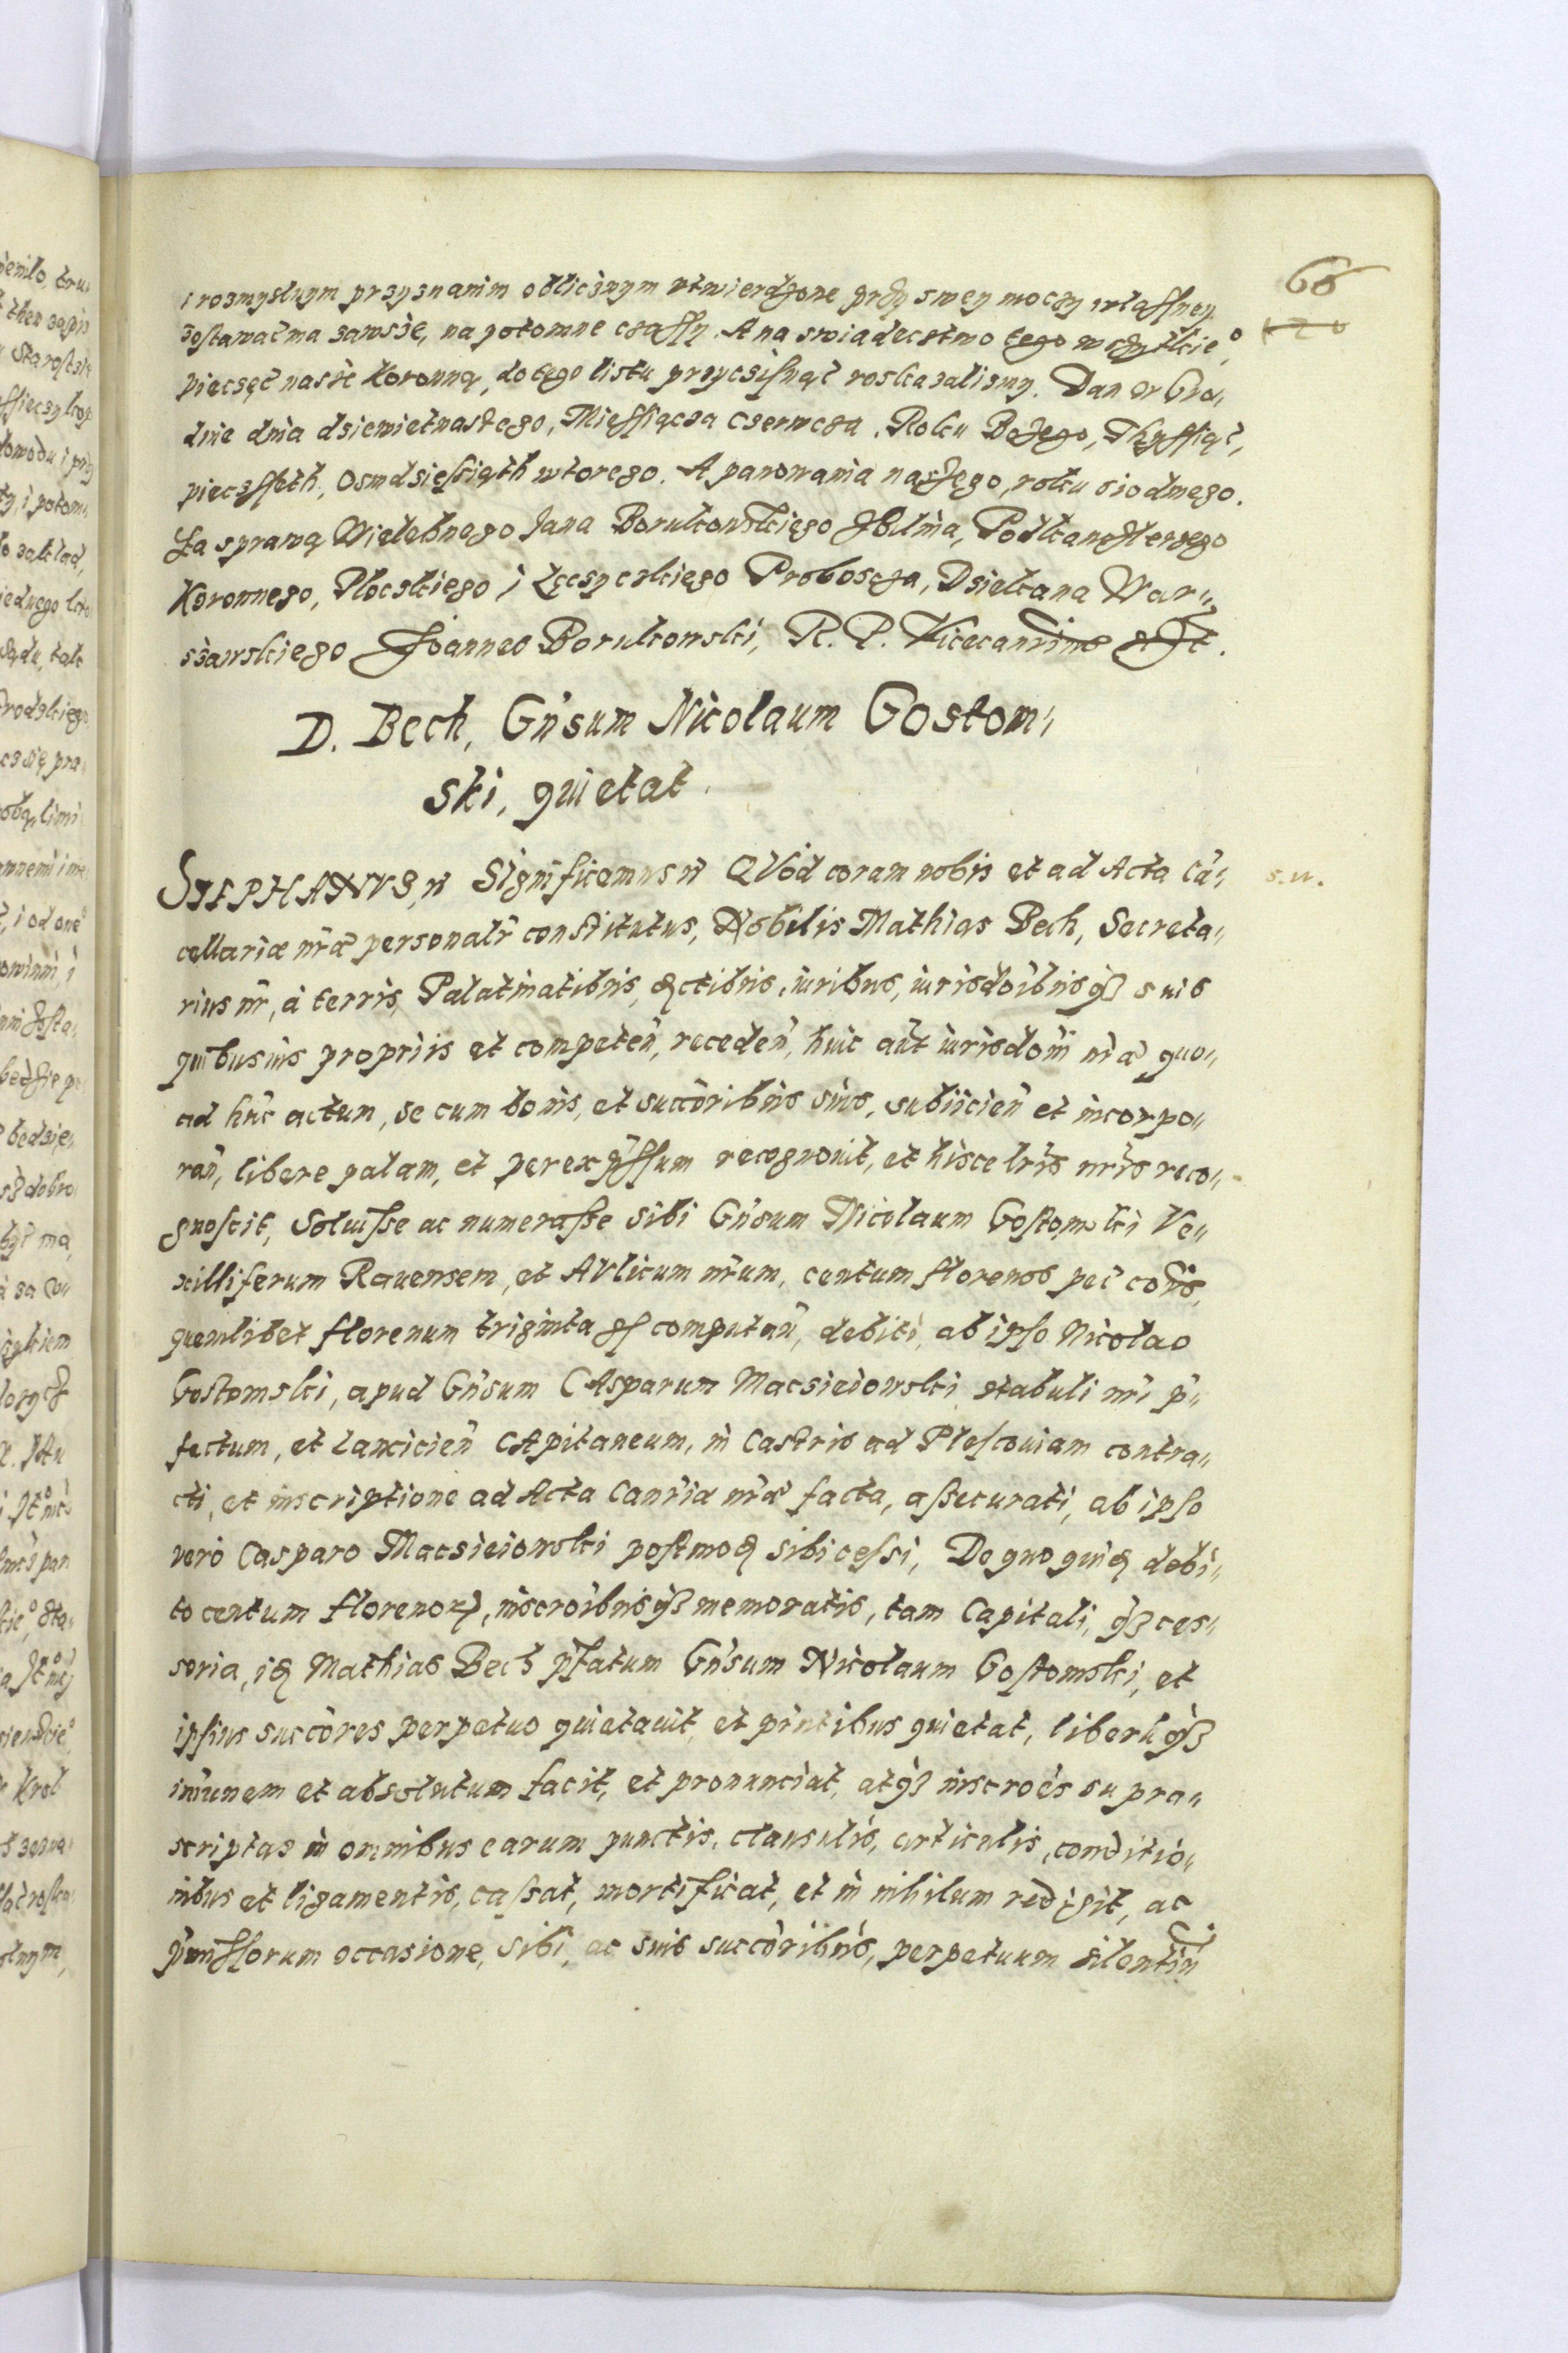 66
i rozmyslnym przyznanim oblicznym utwierdzone przy swey moczy własney
zostawać ma zawsze, na potomne czassy. A na swiadecztwo tego wszytkie°,
pieczęć nasze Koronną, do tego listu przyczisnąć roskazalismy. Dan w Gro„
dnie dnia dziewietnastego, Miessiącza Czerwcza. Roku Bożego, Thyssiąć,
piećzsseth, Osmdziesiąth wtorego. A panowania naszego, roku siodmego.
Za sprawą Wielebnego Jana Borukowskiego Zbilnia, Podkanczlerzego
Koronnego, Płoczkiego i Łęczyczkiego Proboscza, Dziekana War„
szawskiego Joannes Borukowski, R. P. Vicecanrius sszt.
D. Bech, Gn̄sum Nicolaum Gostom„
ski, quietat.
STEPHANVS n̄ Significamus n̄ QVod coram nobis et ad Acta Cā„
s.n.
cellariæ nr̄æ personalr̄ constitutus, Nobilis Mathias Bech, Secreta„
rius nr̄, à terris, Palatinatibus, dictibus, iuribus, iurisdōibusq3 suis
quibusuis propriis et competen̄, receden̄, huic aūt iurisdōni nr̄a quo„
ad hūc actun, se cum bonis, et succōribus suis, subiicien̄ et incorpo„
ran̄, libere palam, et per exp̄ssum recognouit, et hisce lr̄is nr̄is reco„
gnoscit, Soluisse ac numerasse sibi Gn̄sum Nicolaum Gostomski Ve„
xilliferum Rauensem, et AVlicum nr̄um, centum florenos pec̄ cōis,
quemlibet florenum triginta gs computan̄, debiti, ab ipso Nicolao
Gostomski, apud Gn̄sum CAsparum Macsieiowski stabuli nr̄i p̄„
fectum, et Lancicien̄ CApitaneum, in Castris ad Plescouiam contra„
cti, et inscriptione ad Acta Canr̄iæ nr̄æ facta, assecurati, ab ipso
verò Casparo Macsieiowski postmodū sibi cessi, De quo quidē debi„
to centum florenorū, inscrōibusq3 memoratis, tam Capitali, q̄3 ces„
soria, idē Mathias Bech p̄fatum Gn̄sum Nicolaum Gostomski, et
ipsius succōres perpetuo quietauit, et pr̄ntibus quietat, liberūq3
im̄unem et absolutum facit, et pronunciat, atq3 inscrōes supra„
scriptas in omnibus earum punctis, clausulis, articulis, conditio„
nibus et ligamentis, cassat, mortificat, et in nihilum redigit, ac
p̄missorum occasione, sibi, ac suis succōribus, perpetuum silentiū